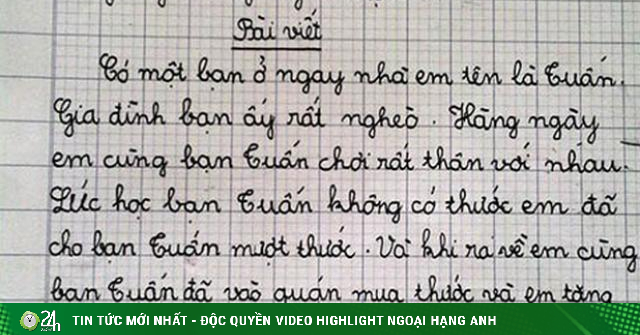 Bài viết
Có một bạn ở ngay nhà em tên là Tuấn.
Gia đình bạn ấy rất nghèo. Hằng ngày
em cùng bạn Tuấn chơi rất thân với nhau.
Lúc học bạn Tuấn không có thước em đã
cho bạn Tuấn mượt thước. Và khi ra về em cùng
bạn Tuấn đã vào quán mua thước và em tặng
24h
TIN TỨC MỚI NHẤT - ĐỘC QUYỀN VIDEO HIGHLIGHT NGOẠI HẠNG ANH